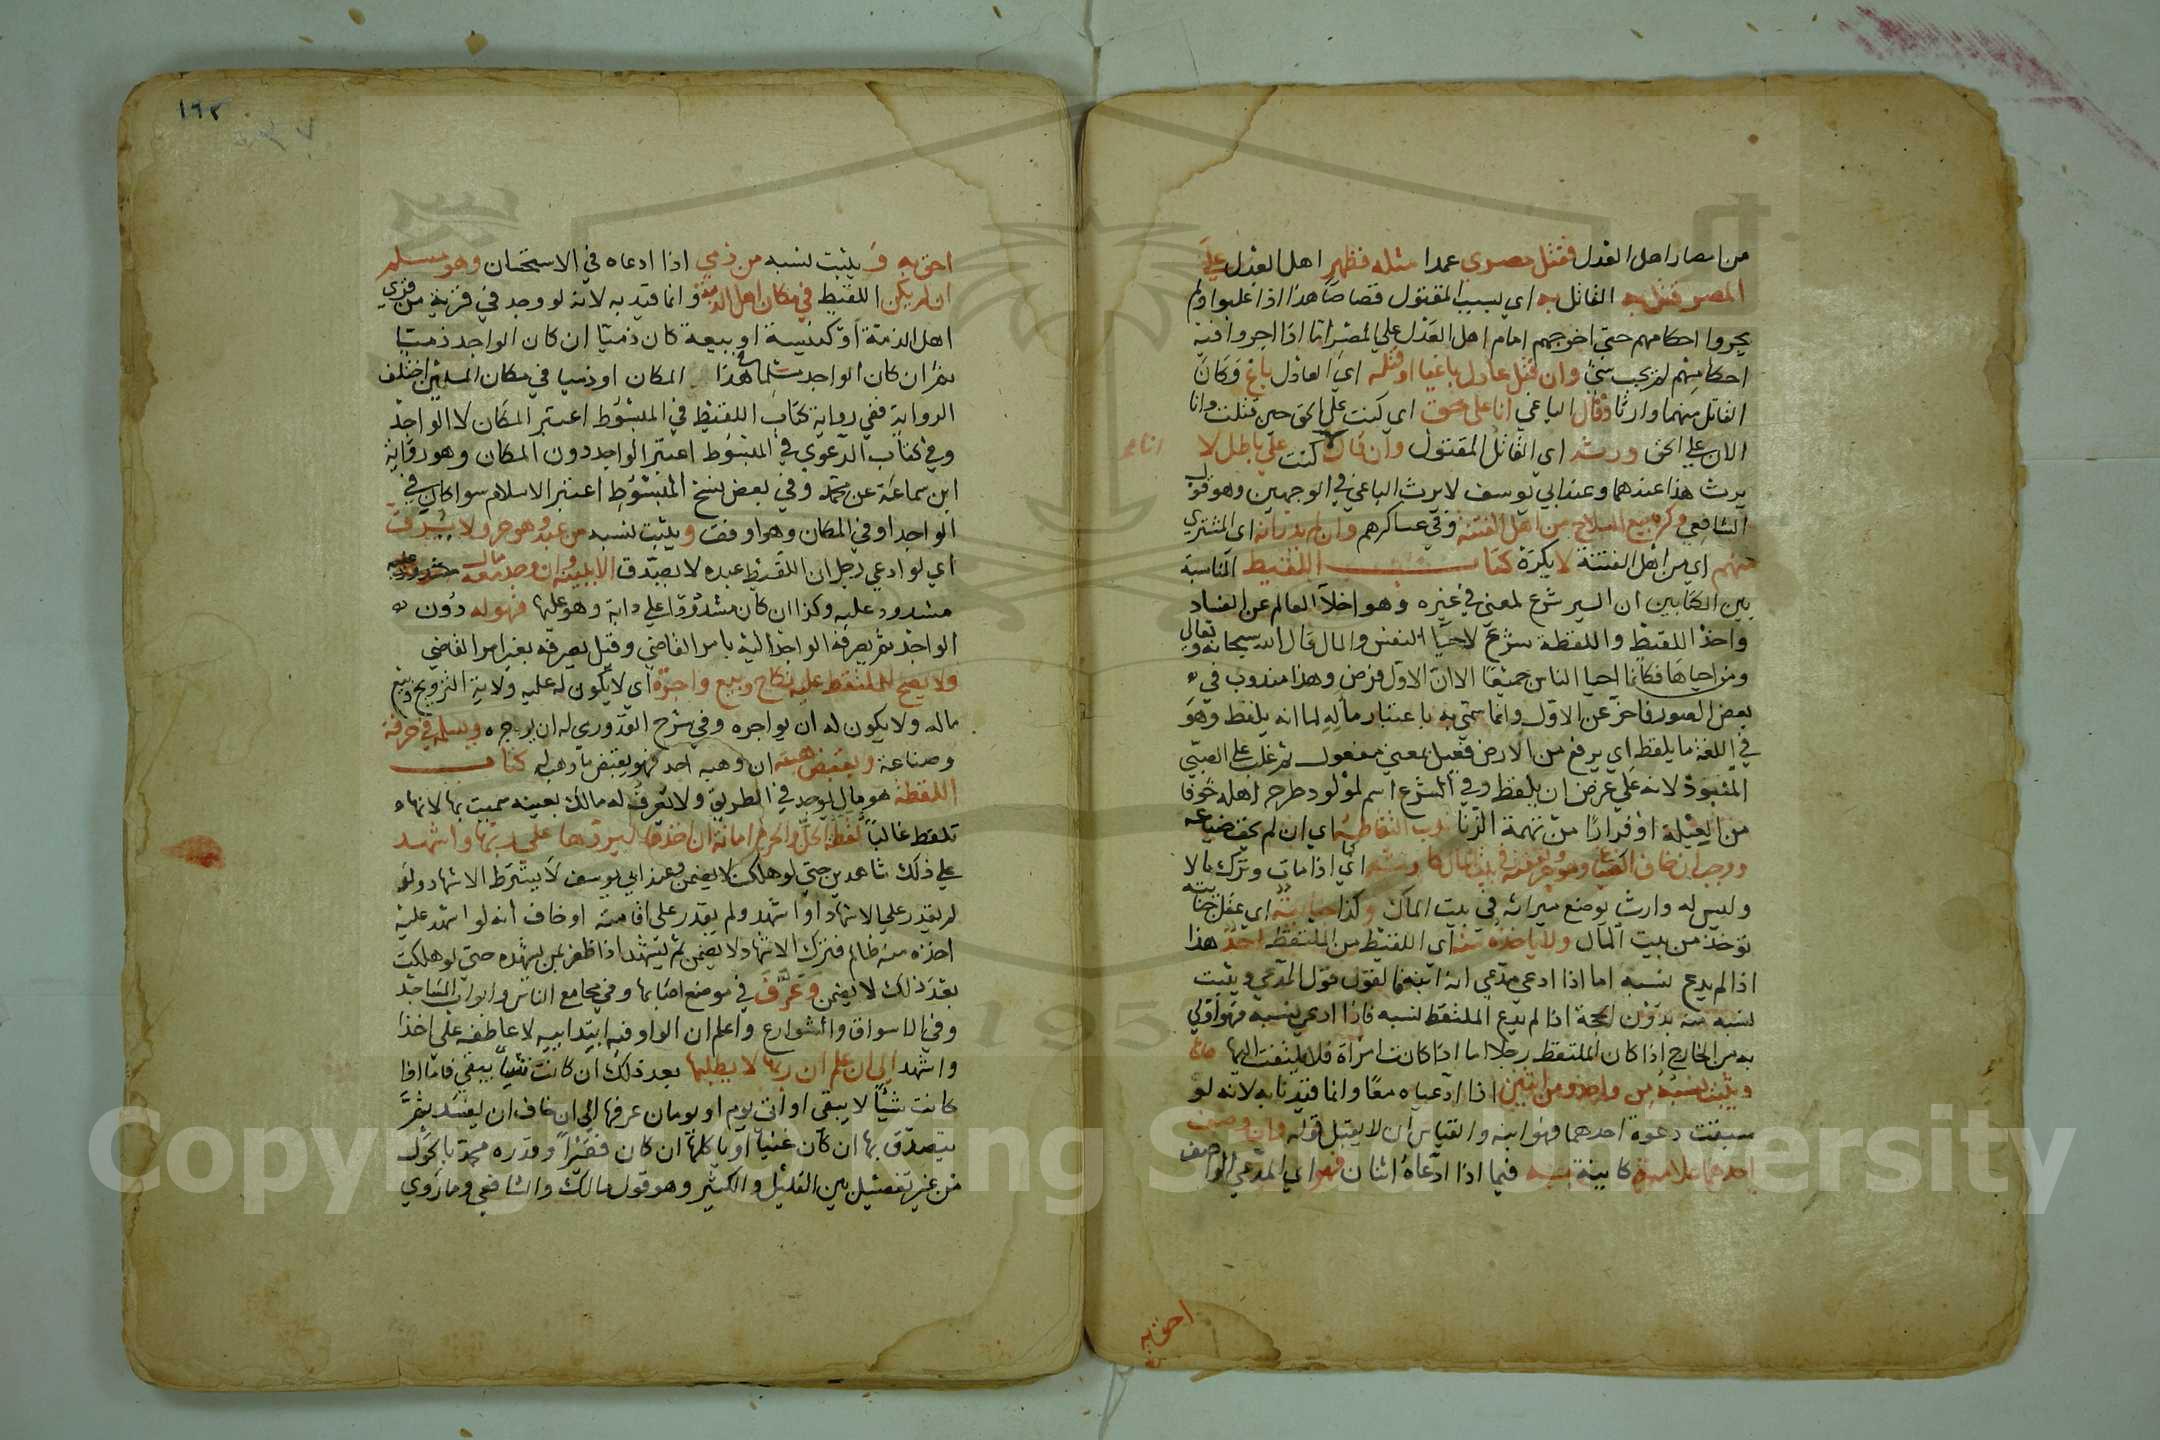 من امصار اهل العدل فقتل مصري عمدا مثله فظهر اهل العدل علي
المصر قتل به القاتل به اي بسبب المقتول قصاصا هذا اذا غلبوا ولم
يجروا احكامهم حتي اخرجهم امام اهل العدل علي المصر اما اذا اجروا فيه
احكامهم لم يجب شئ وان قتل عادل باغيا او قتله اي العادل باغ وكان
القاتل منهما وارثا وقال الباغي انا علي حق اي كنت علي الحق حين قتلت وانا
الان علي الحق ورث اي القاتل المقتول وان قال كنت علي باطل لا
يرث هذا عندهما وعند ابي يوسف لا يرث الباغي في الوجهين وهو قول
الشافعي وكره بيع السلاح من اهل الفتنة وفي عساكرهم وان لم يدر انه اي المشتري
منهم اي من اهل الفتنة لا يكره كتاب اللقيط المناسبة
بين الكتابين ان السير شرع لمعني في غيره وهو اخلا العالم عن الفساد
واخذ اللقيط واللقطة شرع لاحيا النفس والمال قال الله سبحانه وتعالي
ومن احياها فكانما احيا الناس جميعا الا ان الاول فرض وهذا مندوب في
بعض الصور فاخر عن الاول وانما سمي به باعتبار مآله لما انه يلقط وهو
في اللغة ما يلقط اي يرفع من الارض فعيل بمعني مفعول ثم غلب علي الصبي
المنبوذ لانه علي عرض ان يلقط وفي الشرع اسم لمولود طرحه اهله خوفا
من العيلة او فرارا من تهمة الزنا ندب التقاطه اي ان لم يخف ضياعه
ووجب ان خاف الضياع وهو حر ونفقته في بيت المال كارثه اي اذا مات وترك مالا
وليس له وارث يوضع ميراثه في بيت المال وكذا جنايته اي عقل جنايته
يؤخذ من بيت المال ولا ياخذه منه اي اللقيط من الملتقط احد هذا
اذا لم يدع نسبه اما اذا ادعي مدعي انه ابنه فالقول قول المدعي ويثبت
نسبه منه بدون الحجة اذا لم يدع الملتقط نسبه فاذا ادعي نسبه فهو اولي
به من الخارج اذا كان الملتقط رجلا اما اذا كانت امرأة فلا يلتفت اليها
ويثبت نسبه من واحد ومن اثنين اذا ادعياه معا وانما قيدنا به لانه لو
سبقت دعوة احدهما فهو ابنه والقياس ان لا يقبل قوله وان وصف
احدهما علامة كاينة به فيما اذا ادعاه اثنان فهو اي المدعي الواصف
احق به
١٦٢
احق به ويثبت نسبه من ذمي اذا ادعاه في الاستحسان وهو مسلم
ان لم يكن اللقيط في مكان اهل الذمة وانما قيد به لانه لو وجد في قرية من قري
اهل الذمة او كنيسة او بيعة كان ذميا ان كان الواجد ذميا
ثم ان كان الواجد مسلما هذا المكان او ذميا في مكان المسلمين اختلف
الرواية ففي رواية كتاب اللقيط في المبسوط اعتبر المكان لا الواجد
وفي كتاب الدعوي في المبسوط اعتبر الواجد دون المكان وهو رواية
ابن سماعة عن محمد وفي بعض نسخ المبسوط اعتبر الاسلام سوا كان في
الواجد او في المكان وهو اوفق ويثبت نسبه من عبد وهو حر ولا يسترق
اي لو ادعي رجل ان اللقيط عبده لا يصدق الا ببينة وان وجد معه مال
مشدود عليه وكذا ان كان مشدودا علي دابة وهو عليها فهو له دون
الواجد ثم يصرفه الواجد اليه بامر القاضي وقيل يصرفه بغير امر القاضي
ولا يصح للملتقط عليه نكاح وبيع واجرة اي لا يكون له عليه ولاية التزويج وبيع
ماله ولا يكون له ان يواجره وفي شرح القدوري له ان يوجره ويسلمه في حرفة
وصناعة ويقبض هبته ان وهبه احد فهو يقبض ما وهب له كتاب
اللقطة هو مال يوجد في الطريق ولا يعرف له مالك بعينه سميت بها لانها
تلقط غالبا لقطة الحل والحرم امانة ان اخذها ليردها علي ربها واشهد
علي ذلك شاهدين حتي لو هلكت لا يضمن وعند ابي يوسف لا يشترط الاشهاد ولو
لم يقدر علي الاشهاد او اشهد ولم يقدر علي اقامته او خاف انه لو اشهد عليه
اخذه منه ظالم فترك الاشهاد لا يضمن ثم يشهد اذا ظفر بمن يشهده حتي لو هلكت
بعد ذلك لا يضمن وعرف في موضع اصابها وفي مجامع الناس وابواب المساجد
وفي الاسواق والشوارع واعلم ان الواو فيه ابتدائيه لا عاطفه علي اخذ
واشهد الي ان علم ان ربها لا يطلبها بعد ذلك ان كانت شيأ يبقي فاما اذا
كانت شيأ لا يبقي او اتي يوم او يومان عرفها الي ان خاف ان يفسد ثم
يتصدق بها ان كان غنيا او ياكلها ان كان فقيرا وقدره محمد بالحول
من غير تفصيل بين القليل والكثير وهو قول مالك والشافعي وما روي
Copyright © King Saud University
195